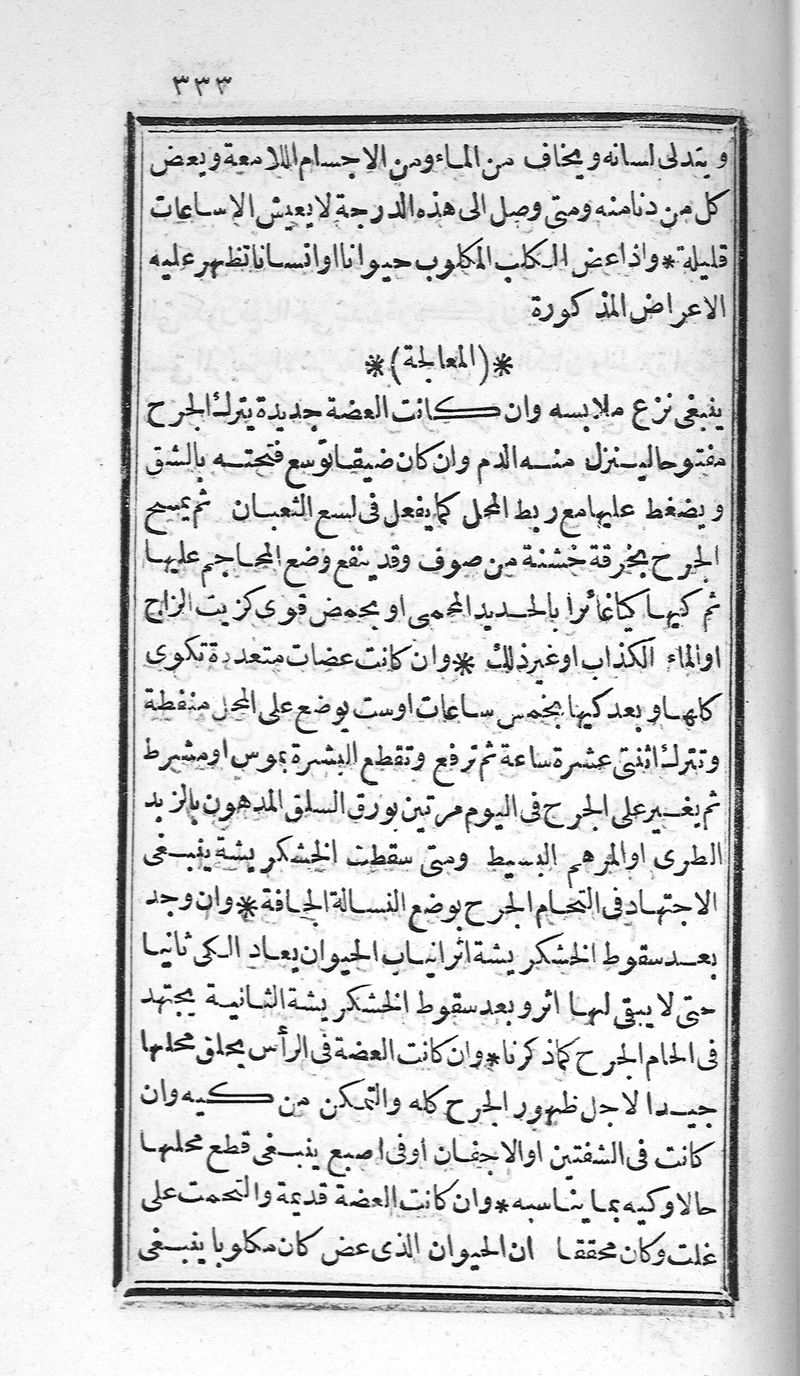 ٣٣٣
ويتدلى لسانه ويخاف من الماء ومن الاجسام اللامعة ويعض
كل من دنامنه ومتى وصل الى هذه الدرجة لا يعيش الاساعات
قليلة * واذاعض الكلب المكلوب حيوانا او انسانا تظهر عليه
الاعراض المذكورة
* (المعالجة) *
ينبغى نزع ملابسه وان كانت العضة جديدة يترك الجرح
مفتوحا لينزل منه الدم وان كان ضيقا توسع فتحته بالشق
ويضغط عليها مع ربط المحل كما يفعل فى لسع الثعبان ثم يمسح
الجرح بخرقة خشنة من صوف وقد ينفع وضع المحاجم عليها
ثم كيها كيا غائرا بالحديد المحمى او بحمض قوى كزيت الزاج
او الماء الكذاب او غير ذلك * وان كانت عضات متعددة تكوى
كلها وبعد كيها بخمس ساعات اوست يوضع على المحل منفطة
وتترك اثنتى عشرة ساعة ثم ترفع وتقطع البشرة بموس او مشرط
ثم يغير على الجرح فى اليوم مرتين بورق السلق المدهون بالزبد
الطرى او المرهم البسيط ومتى سقطت الخشكريشة ينبغى
الاجتهاد فى التحام الجرح بوضع النسالة الجافة * وان وجد
بعد سقوط الخشكريشة اثر انياب الحيوان يعاد الكى ثانيا
حتى لا يبقى لها اثر وبعد سقوط الخشكريشة الثانية يجتهد
فى الحام الجرح كما ذكرنا * وان كانت العضة فى الرأس يحلق محلها
جيدا لاجل ظهور الجرح كله والتمكن من كيه وان
كانت فى الشفتين او الاجفان او فى اصبع ينبغى قطع محلها
حالا وكيه بما يناسبه * وان كانت العضة قديمة والتحمت على
غلت وكان محققا ان الحيوان الذى عض كان مكلوبا ينبغى